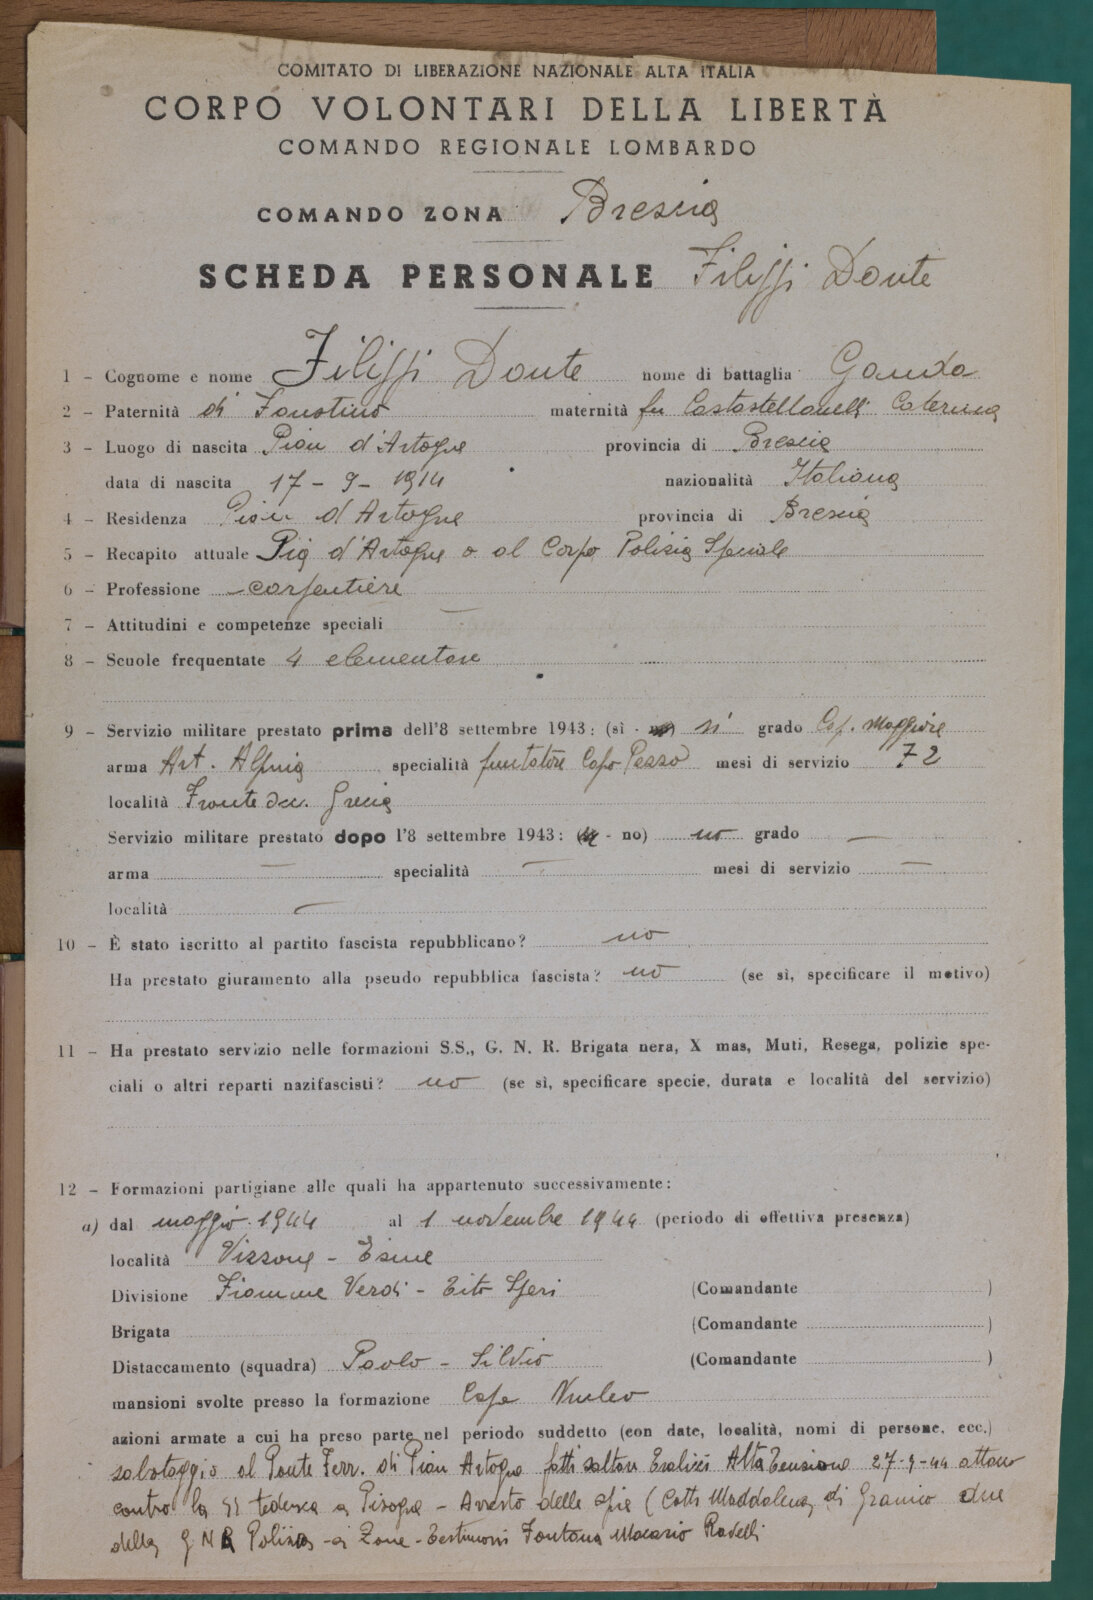 COMITATO DI LIBERAZIONE NAZIONALE ALTA ITALIA
CORPO VOLONTARI DELLA LIBERTÀ
COMANDO REGIONALE LOMBARDO
COMANDO ZONA Brescia
SCHEDA PERSONALE Filippi Dante
1 - Cognome e nome Filippi Dante nome di battaglia
2 - Paternità di Faustino maternità fu Caterina
3 - Luogo di nascita Pian d'Artogne provincia di Brescia
data di nascita 17-9-1914 nazionalità Italiana
4 - Residenza Pian d'Artogne provincia di Brescia
5 - Recapito attuale Pia d'Artogne o al Corpo Polizia Speciale
6 - Professione - carpentiere
7 - Attitudini e competenze speciali —
8 - Scuole frequentate 4 elementare
9 - Servizio militare prestato prima dell'8 settembre 1943: (sì - no) si grado Cap. Maggiore
arma Art. Alpina specialità puntatore Capo Pezzo mesi di servizio 72
località Fronte Grecia
Servizio militare prestato dopo l'8 settembre 1943: (si - no) no grado —
arma — specialità — mesi di servizio —
località —
10 - È stato iscritto al partito fascista repubblicano? no
Ha prestato giuramento alla pseudo repubblica fascista? no (se sì, specificare il motivo)
11 - Ha prestato servizio nelle formazioni S.S., G. N. R. Brigata nera, X mas, Muti, Resega, polizie spe-
ciali o altri reparti nazifascisti? no (se sì, specificare specie, durata e località del servizio)
12 - Formazioni partigiane alle quali ha appartenuto successivamente:
a) dal maggio 1944 al 1 novembre 1944 (periodo di effettiva presenza)
località Vissone - Esine
Divisione Fiamme Verdi - Tito Speri (Comandante )
Brigata (Comandante )
Distaccamento (squadra) Paolo - Silvio (Comandante )
mansioni svolte presso la formazione Capo Nucleo
azioni armate a cui ha preso parte nel periodo suddetto (con date, località, nomi di persone, ecc.)
sabotaggio al Ponte Ferr. di Pian Artogne fatti saltare Tralicci Alta Tensione 27-9-44 attacco
contro la SS tedesca a Pisogne - Arresto delle spie ( Maddalena di Gianico due
della GNR Polizia - a Zone - Testimoni Fontana Macario Ravelli